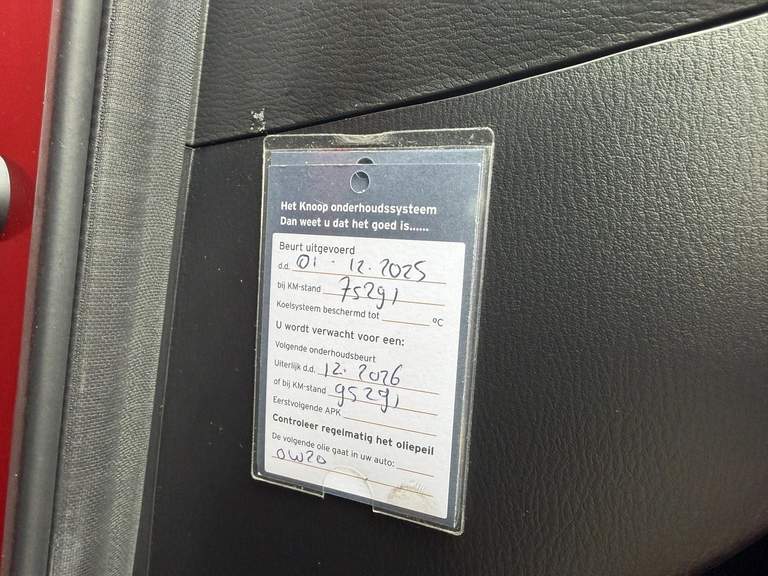 Het Knoop onderhoudssysteem
Dan weet u dat het goed is......
Beurt uitgevoerd
d.d. 01 . 12 . 2025
bij KM-stand 75291
Koelsysteem beschermd tot ºC
U wordt verwacht voor een:
Volgende onderhoudsbeurt
Uiterlijk d.d. 12 . 2026
of bij KM-stand 95291
Eerstvolgende APK
Controleer regelmatig het oliepeil
De volgende olie gaat in uw auto:
0W20